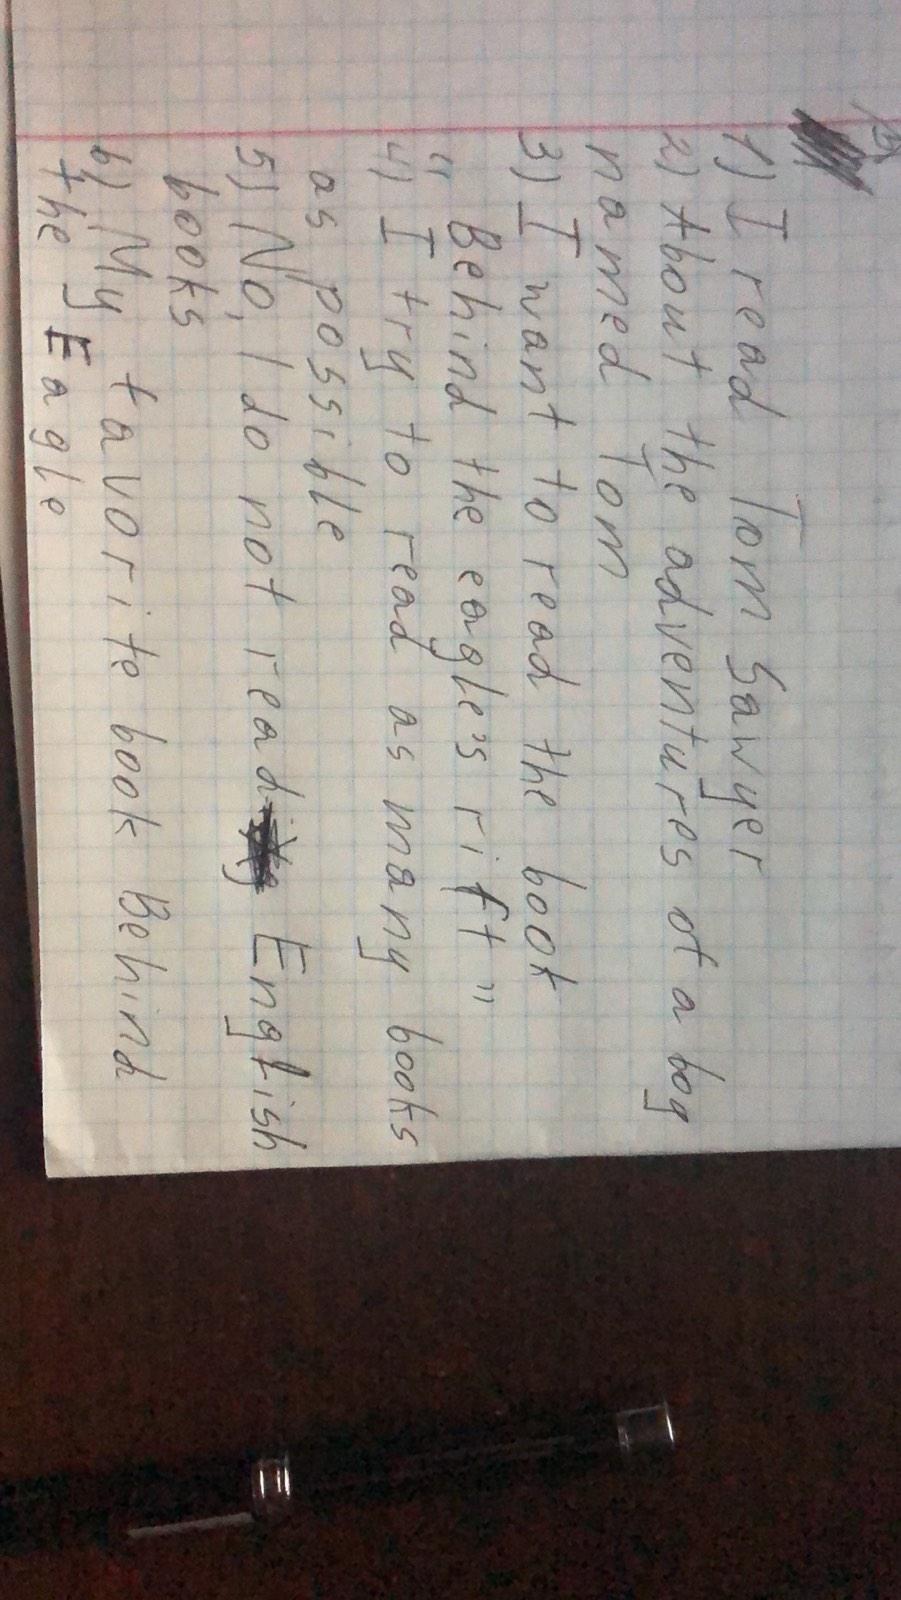 1) I read Tom Sawyer
2) About the adventures of a bog
named Tom
3) I want to read the book
"Behind the eagle's rift"
4) I try to read as many books
as possible
5) No, I do not read English
books
6) My favorite book Behind
the Eagle